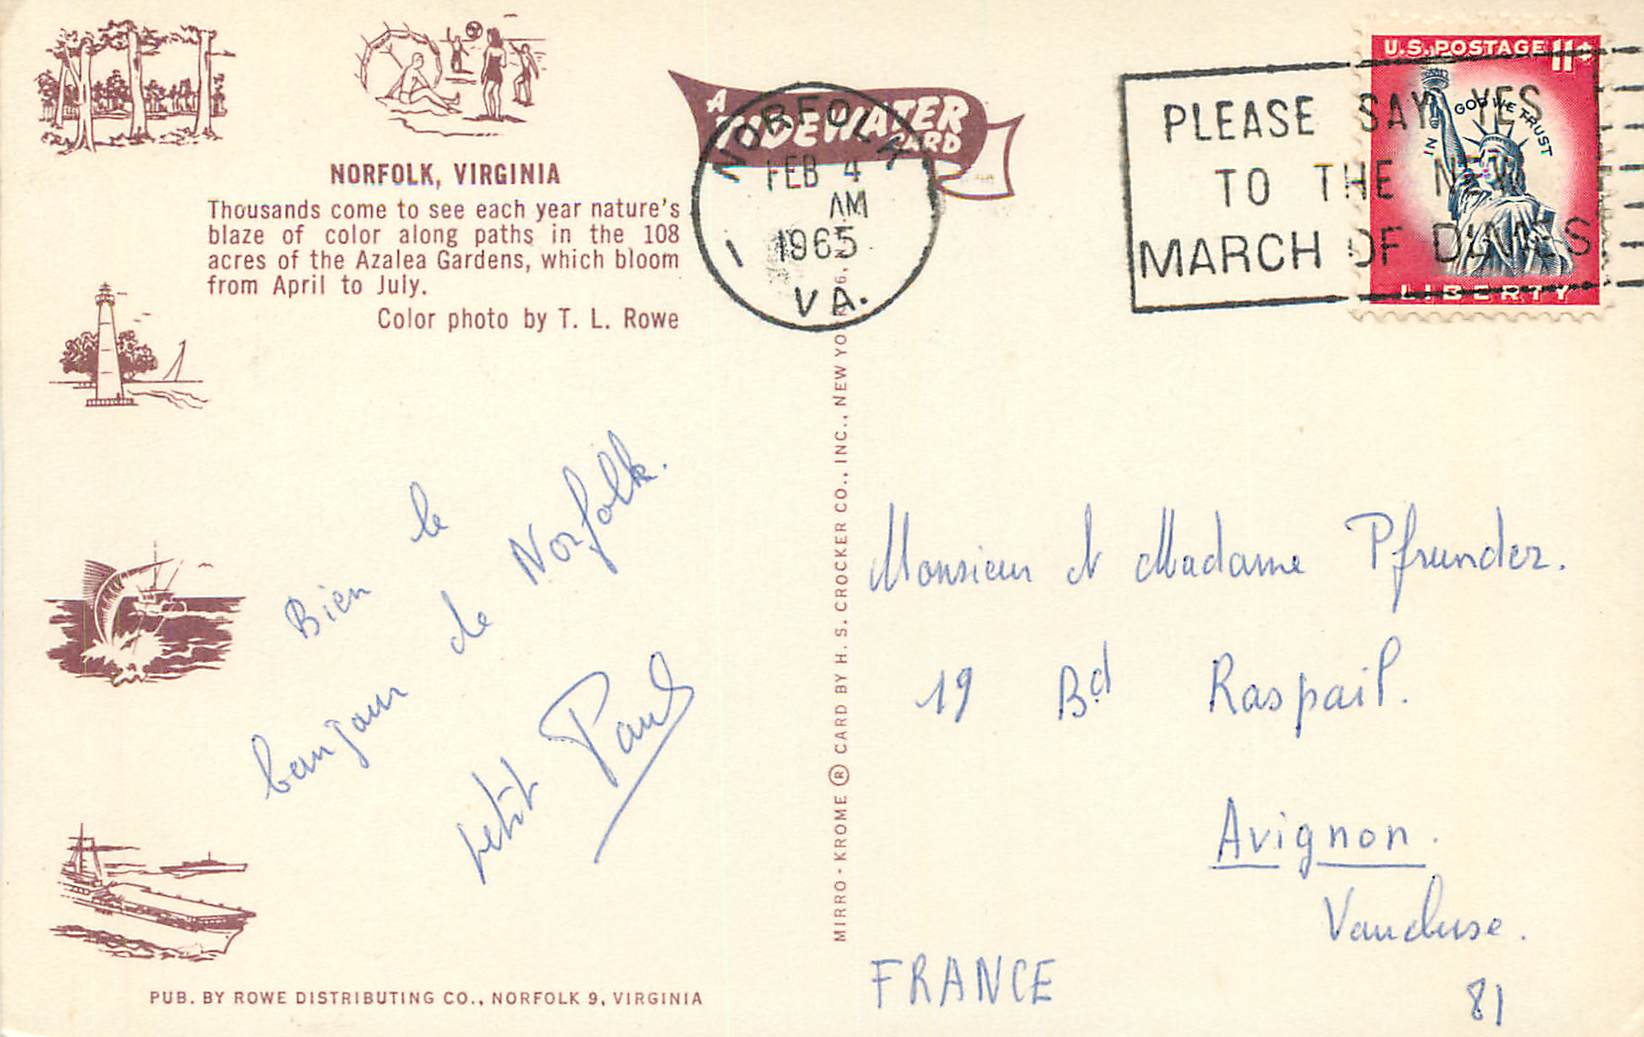 NORFOLK, VIRGINIA
Thousands come to see each year nature's
blaze of color along paths in the 108
acres of the Azalea Gardens, which bloom
from April to July.
Color photo by T. L. Rowe
A
TIDEWATER
CARD
NORFOLK
FEB 4
AM
1965
1
VA.
PLEASE SAY YES
TO THE NEW
MARCH OF DIMES
U.S. POSTAGE 11¢
IN GOD WE TRUST
LIBERTY
Bien le
bonjour de Norfolk.
petit Paul
MIRRO-KROME ® CARD BY H. S. CROCKER CO., INC., NEW YO
Monsieur et Madame Pfrunder.
19 Bd Raspail.
Avignon.
Vaucluse.
FRANCE
81
PUB. BY ROWE DISTRIBUTING CO., NORFOLK 9, VIRGINIA